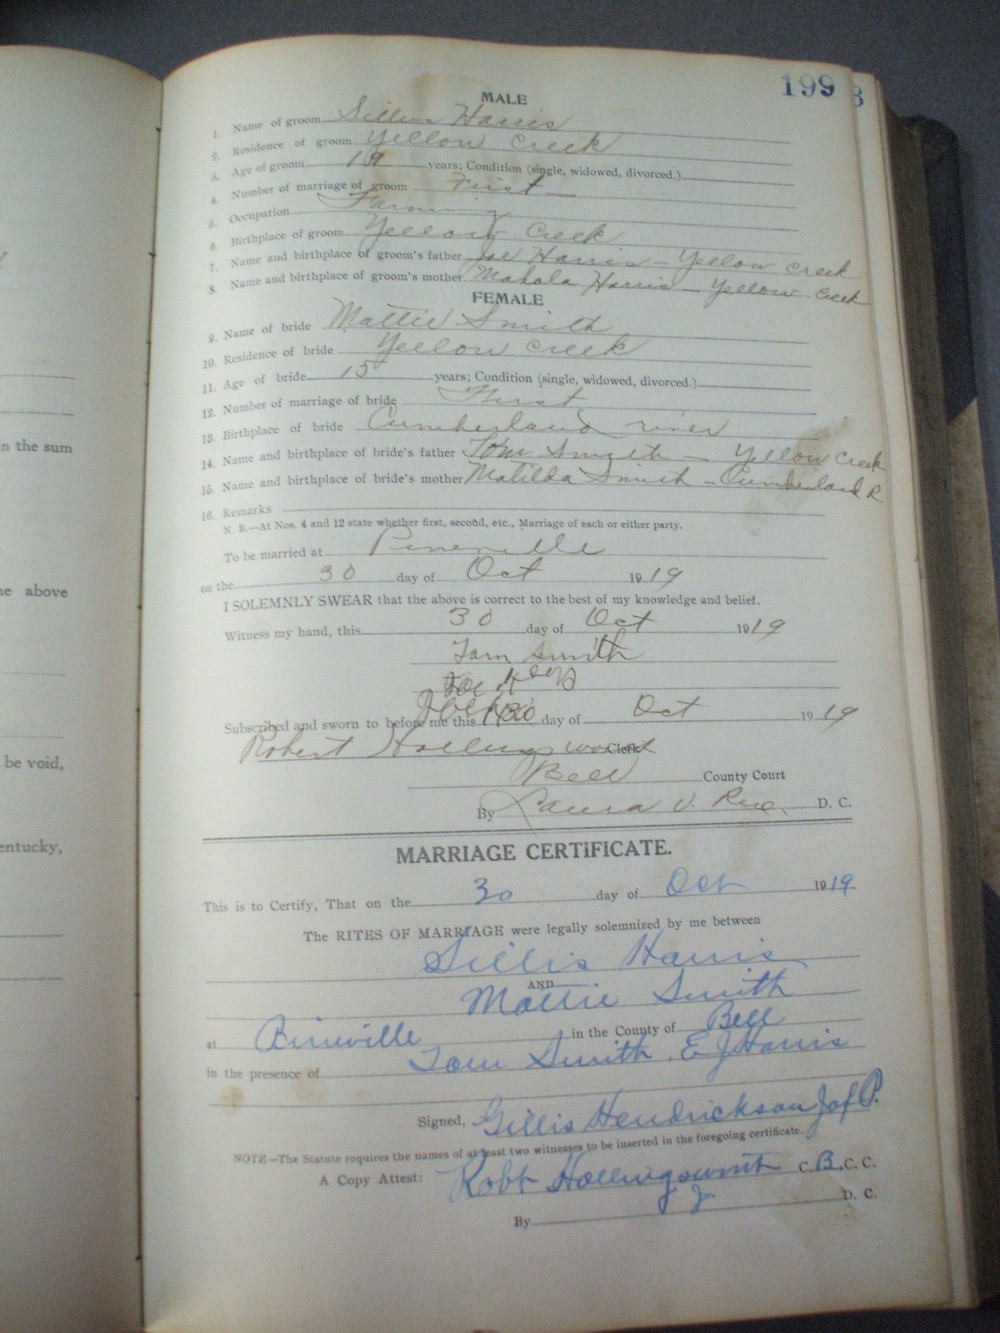 199
MALE
1. Name of groom Harris
2. Residence of groom Yellow Creek
3. Age of groom years; Condition (single, widowed, divorced.)
4. Number of marriage of groom First
5. Occupation Farming
6. Birthplace of groom Yellow Creek
7. Name and birthplace of groom's father Joe Harris - Yellow Creek
8. Name and birthplace of groom's mother Mahala Harris - Yellow Creek
FEMALE
9. Name of bride Mattie Smith
10. Residence of bride Yellow Creek
11. Age of bride 15 years; Condition (single, widowed, divorced.)
12. Number of marriage of bride First
13. Birthplace of bride Cumberland river
14. Name and birthplace of bride's father Tom Smith - Yellow Creek
15. Name and birthplace of bride's mother Matilda Smith - Cumberland R
16. Remarks
N. B.—At Nos. 4 and 12 state whether first, second, etc., Marriage of each or either party.
To be married at Pineville
on the 30 day of Oct 1919
I SOLEMNLY SWEAR that the above is correct to the best of my knowledge and belief.
Witness my hand, this 30 day of Oct 1919
Tom Smith
Subscribed and sworn to before me this 30 day of Oct 1919
Robert Hollingsworth Clerk
Bell County Court
By Laura V. D. C.
MARRIAGE CERTIFICATE.
This is to Certify, That on the 30 day of Oct 1919
The RITES OF MARRIAGE were legally solemnized by me between
Harris
AND
Mattie Smith
at Pineville in the County of Bell
in the presence of Tom Smith, E J Harris
Signed, Gillis Hendrickson J of P.
NOTE—The Statute requires the names of at least two witnesses to be inserted in the foregoing certificate.
A Copy Attest: Robt Hollingsworth C.B.C.C.
By D. C.
n the sum
e above
be void,
entucky,